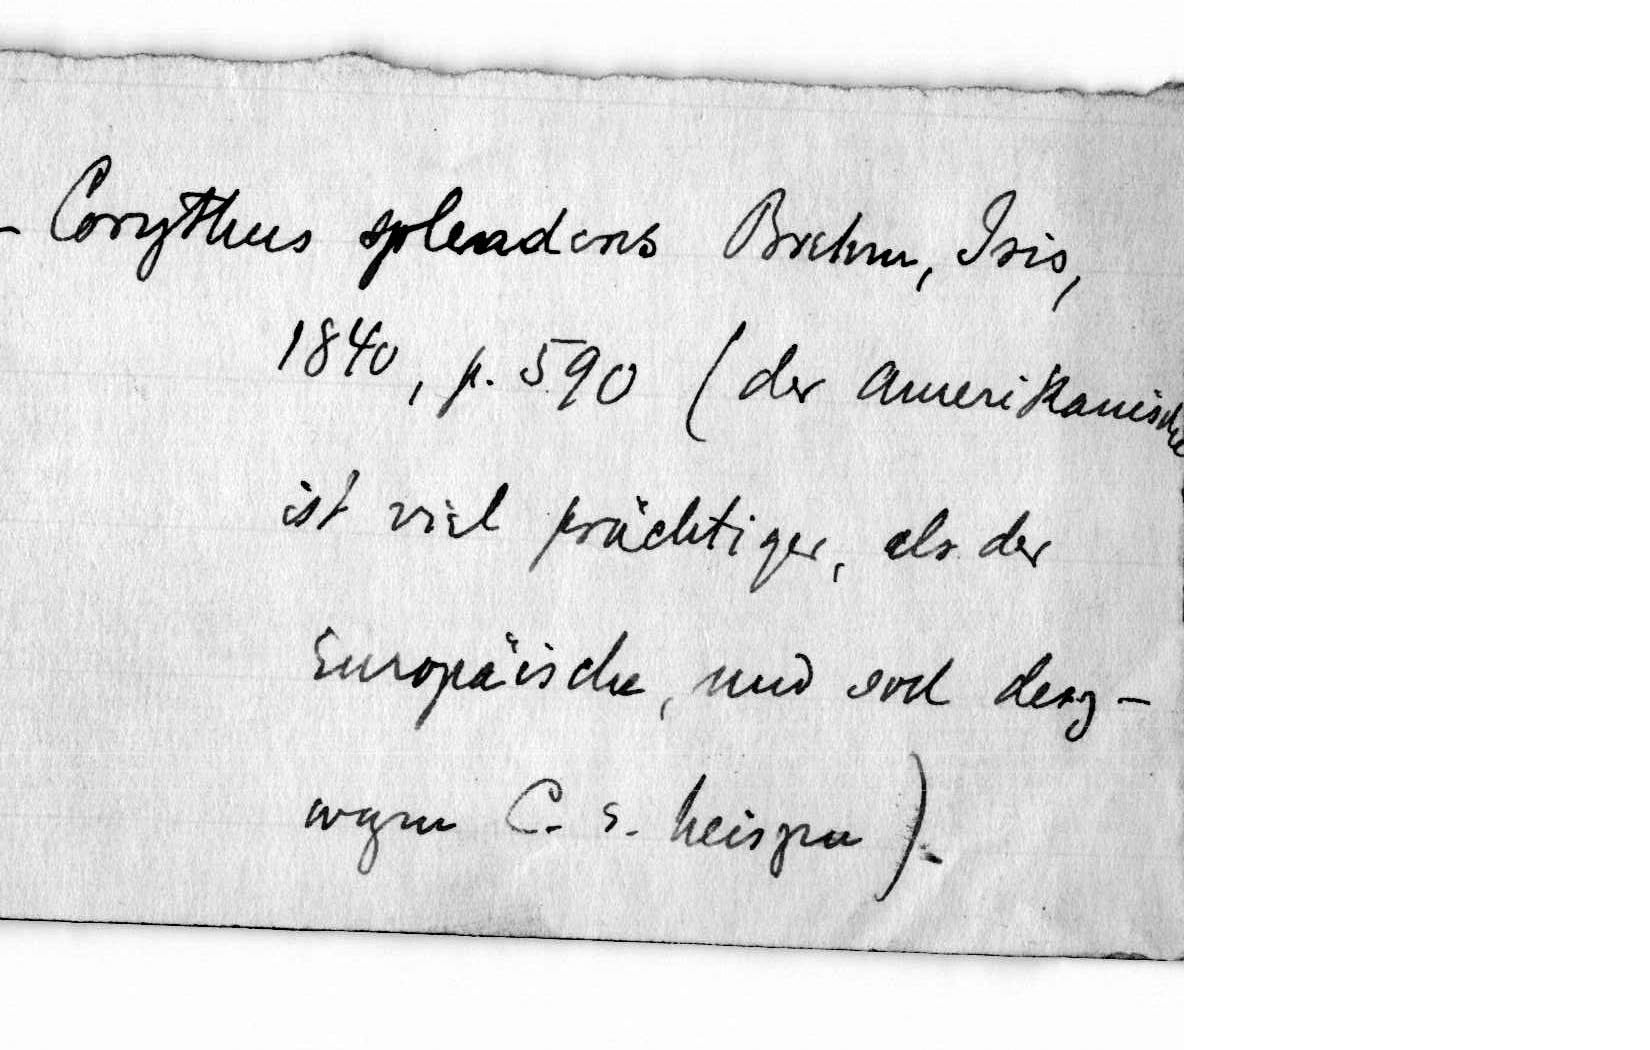 - Corythus splendens Brehm, Isis,
1840, p. 590 (der Amerikanische
ist viel prächtiger, als der
Europäische, und soll desz-
wegen C. s. heiszen).